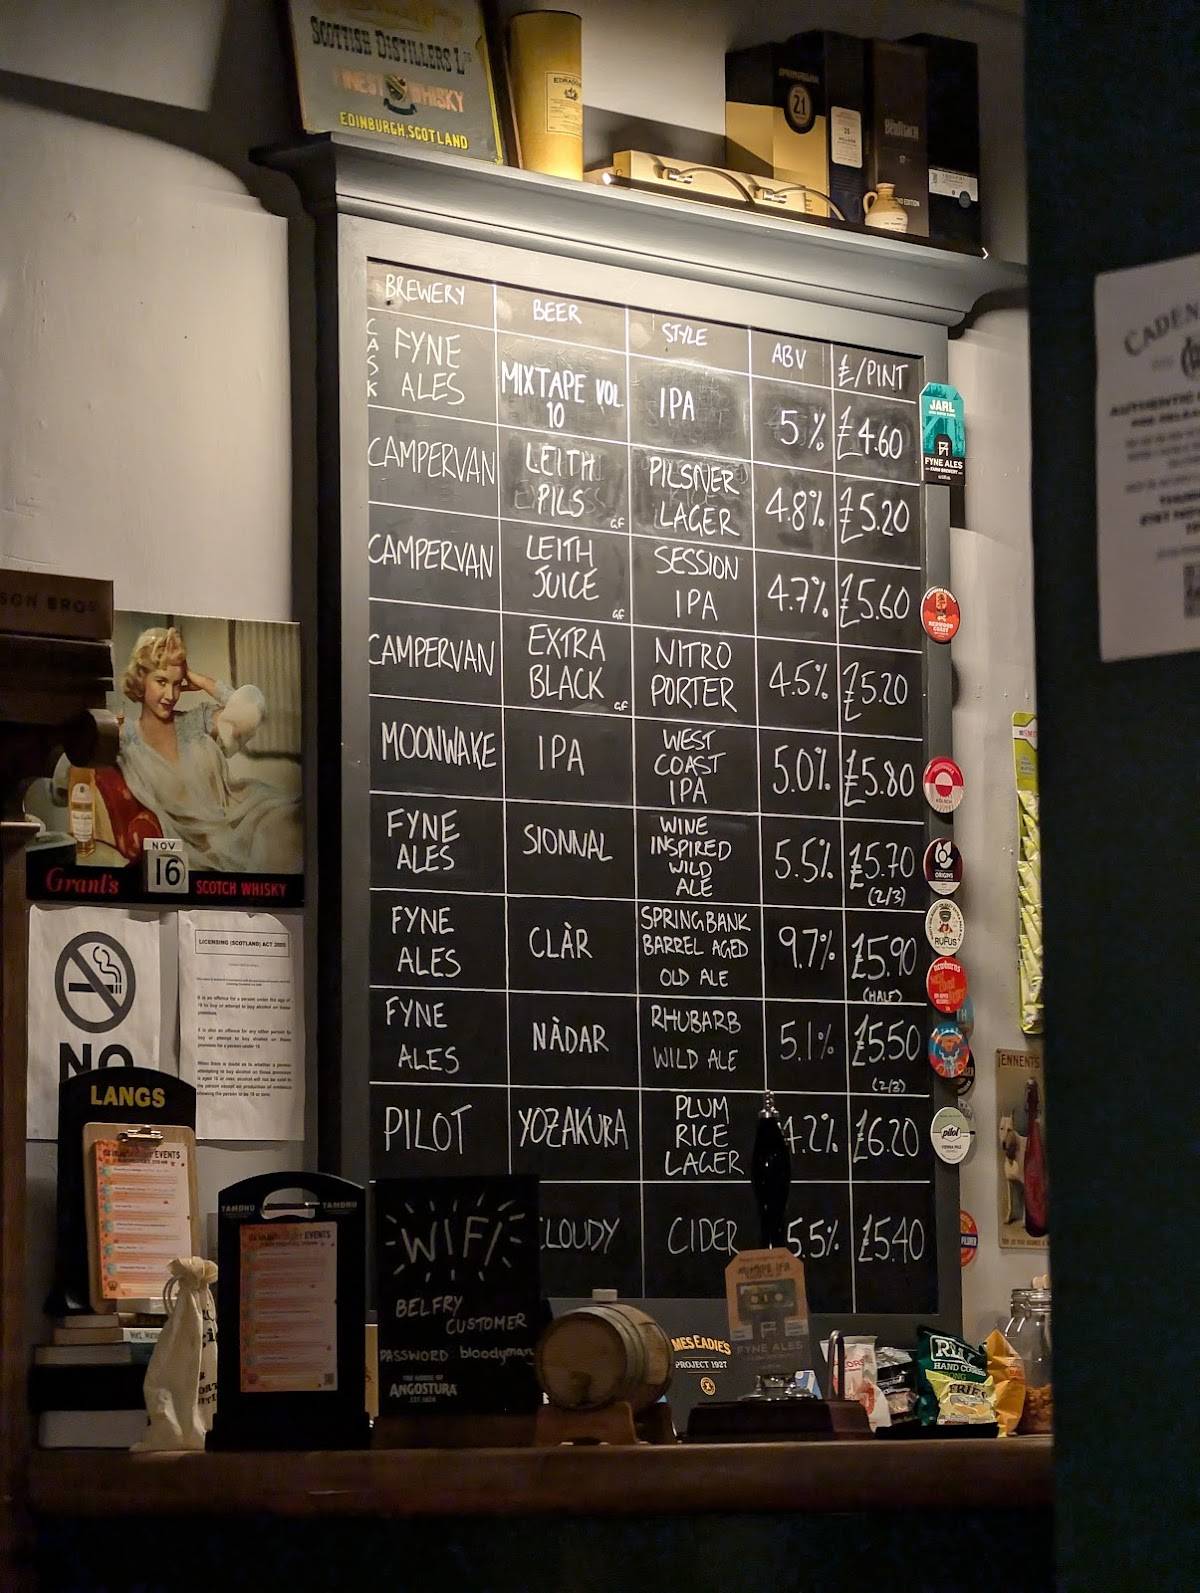 SCOTTISH DISTILLERS LTD
FINEST WHISKY
EDINBURGH, SCOTLAND
21
BREWERY BEER STYLE ABV £/PINT
CASK FYNE ALES MIXTAPE VOL 10 IPA 5% £4.60
CAMPERVAN LEITH PILS GF PILSNER LAGER 4.8% £5.20
CAMPERVAN LEITH JUICE GF SESSION IPA 4.7% £5.60
CAMPERVAN EXTRA BLACK GF NITRO PORTER 4.5% £5.20
MOONWAKE IPA WEST COAST IPA 5.0% £5.80
FYNE ALES SIONNAL WINE INSPIRED WILD ALE 5.5% £5.70 (2/3)
FYNE ALES CLÀR SPRINGBANK BARREL AGED OLD ALE 9.7% £5.90 (HALF)
FYNE ALES NÀDAR RHUBARB WILD ALE 5.1% £5.50 (2/3)
PILOT YOZAKURA PLUM RICE LAGER 4.2% £6.20
CLOUDY CIDER 5.5% £5.40
JARL
FYNE ALES
KÖLSCH
ORIGINS
RUFUS
pilot
CADEN
SON BROS
NOV
16
Grant's SCOTCH WHISKY
NO
LICENSING (SCOTLAND) ACT 2005
LANGS
EVENTS
TAMDHU TAMDHU
EVENTS
WIFI
BELFRY
CUSTOMER
PASSWORD bloodymary
THE HOUSE OF
ANGOSTURA
MES EADIE'S
PROJECT 1927
MIXTAPE IPA
FYNE ALES
HAND CO
ENNENT'S